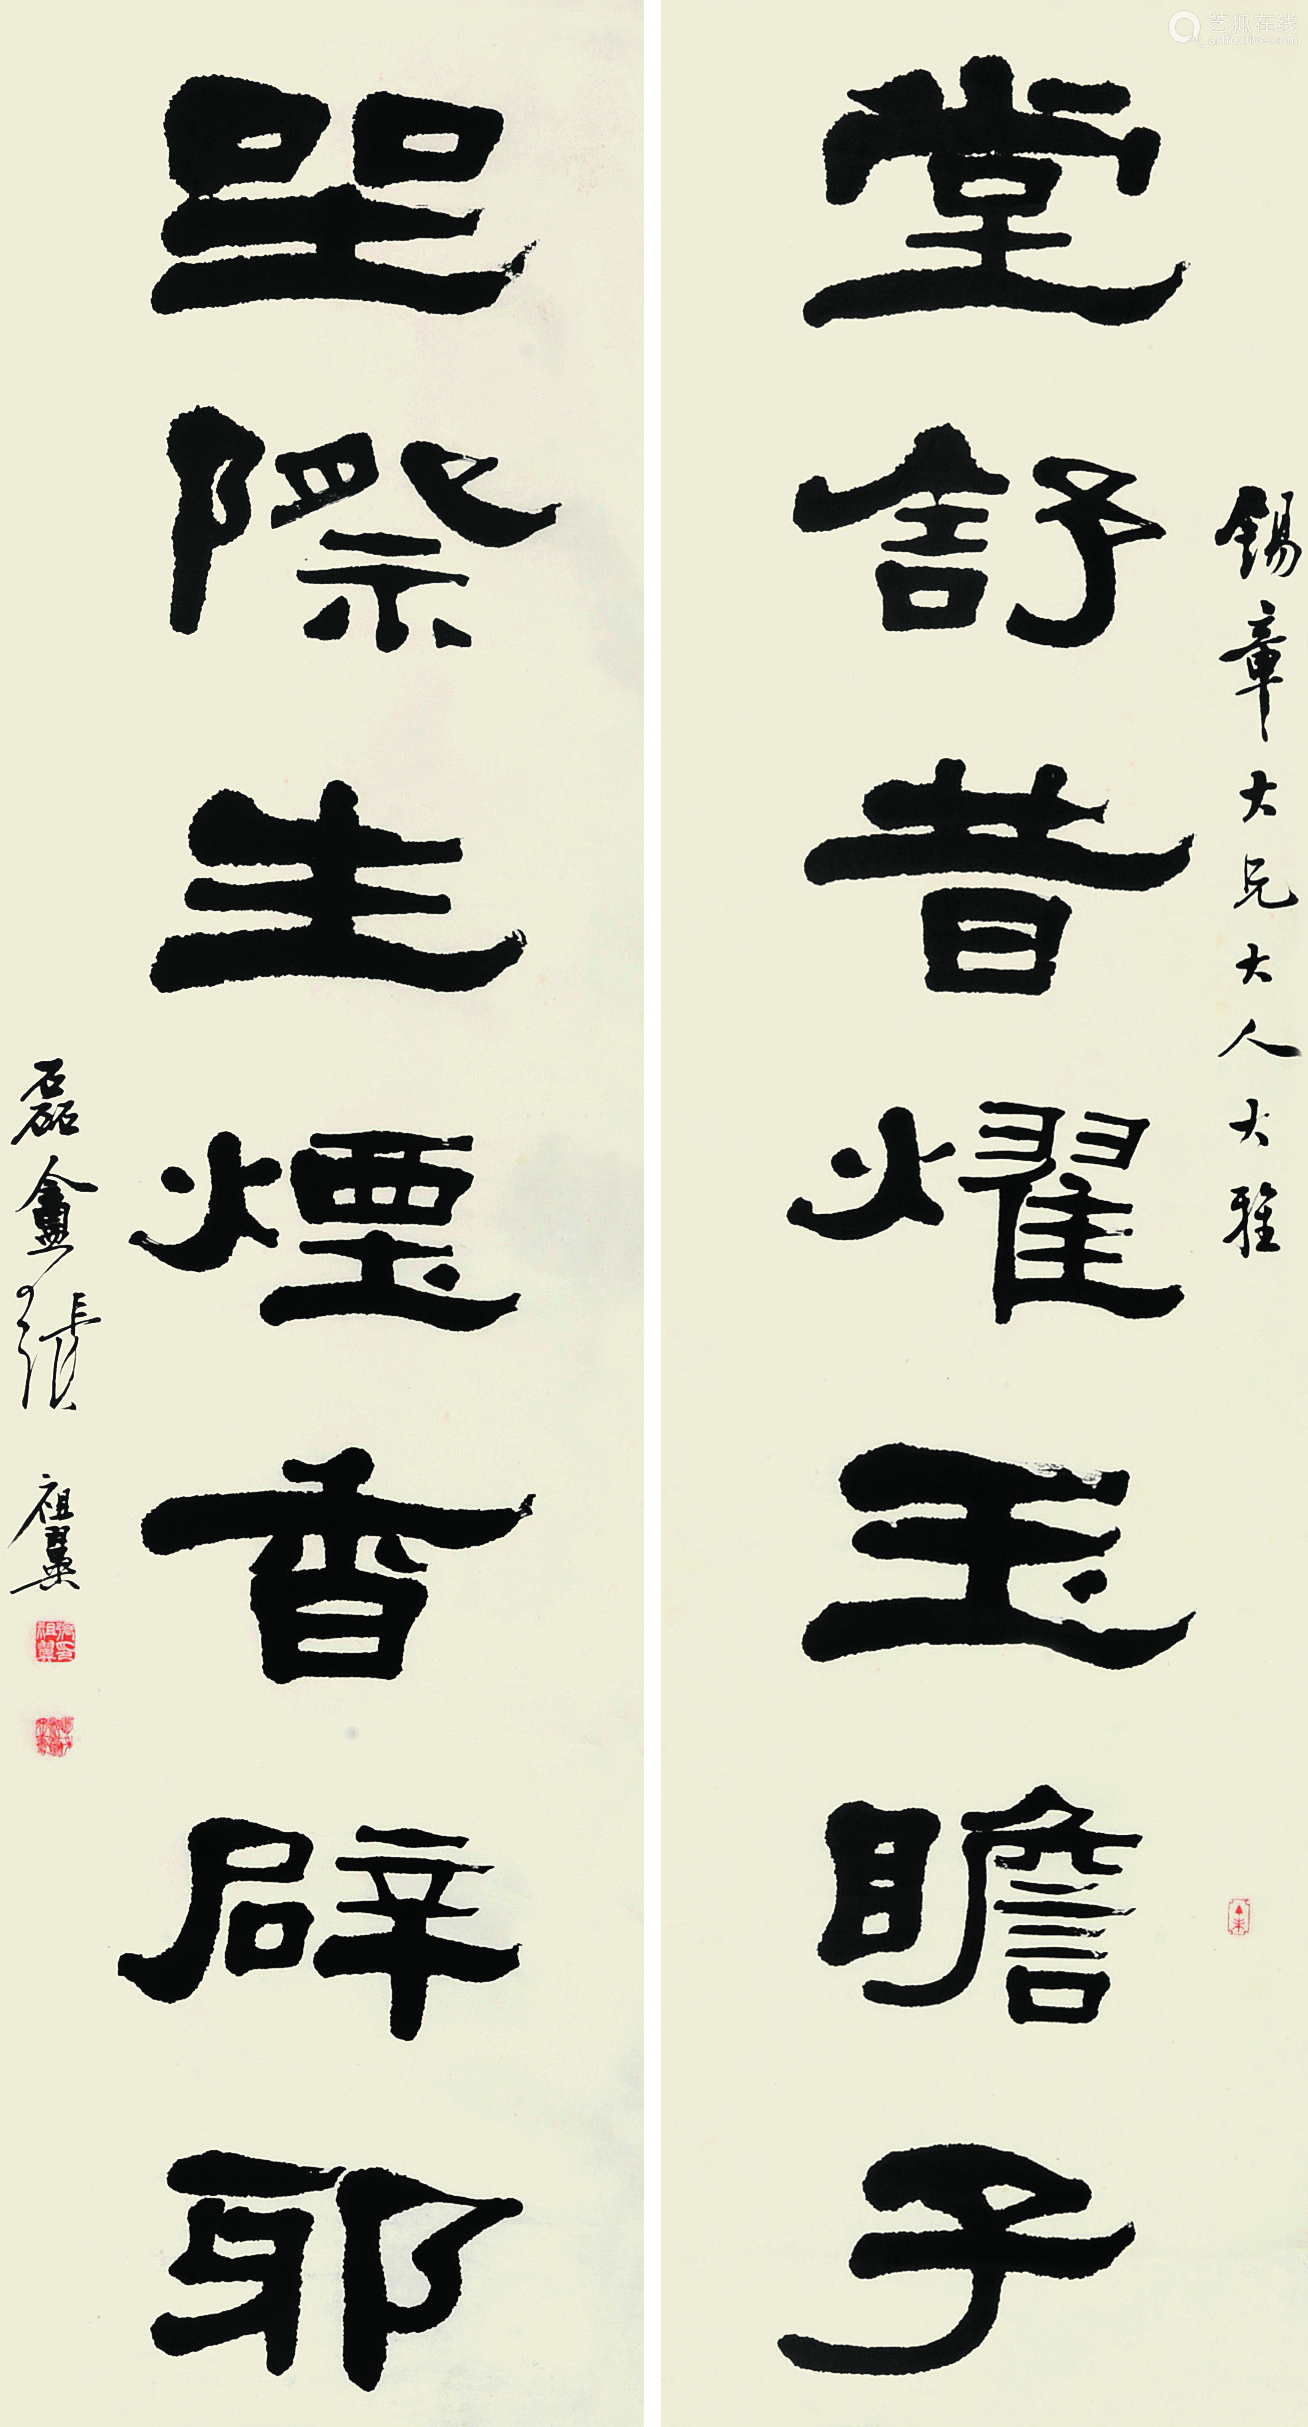 錫章大兄大人大雅
堂舒昔耀玉瞻子
坐際生煙香辟邪
磊盦張祖翼
艺狐在线
artfoxlive.com